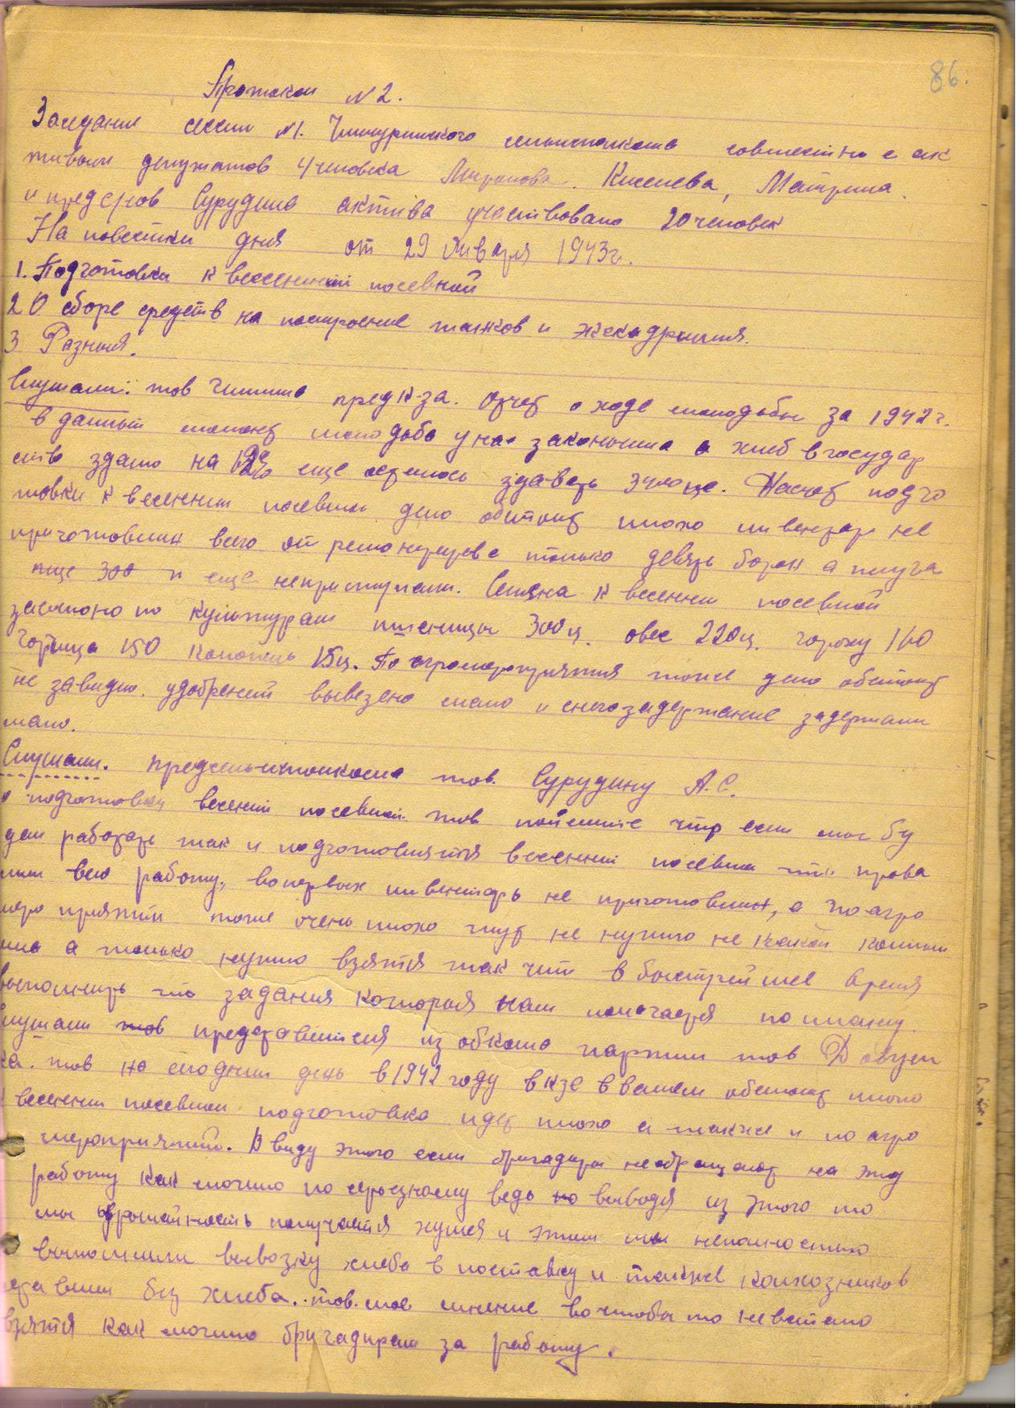 86.
Протокол №2.
Заседание сессии №1. сельисполкома совместно с ак
тивом депутатов 4 человека Миронова. Киселева, Матрина.
и предс-ров Сурудина актива участвовало 20 человек
На повестки дня от 29 Января 1943г.
1. Подготовка к весенней посевной
2 О сборе средств на построение танков и эскадрилия.
3 Разныя.
Слушали: тов пред к-за. Отчет о ходе молодьбы за 1942 г.
в данный момент молодьба у нас законьчина а хлеб в государ
ство здано на еще осталось здавать ц. Насчет подго
товки к весенней посевной дело обстоит плохо инвентарь не
приготовлин всего отремонтирова только девять борон а плуга
еще неприступали. Семена к весенней посевной
засыпоно по культурам пшеницы 300ц. овес 220ц. гороху 160
150 15ц. По агромероприятия тоже дело обстоит
не завидно. удобрений вывезено мало и снегозадержание задержали
мало.
Слушали. Предсельисполкома тов. Сурудину А.С.
о подготовки весенней посевной. тов поймите что если мы бу
дем работать так и подготовлятся к весенней посевной то прова
лим всю работу, вопервых инвентарь не приготовлин, а по агро
меро приятий тоже очень плохо тут не нужно не какой
а только нужно взятся так что в быстрейшее время
выполнить то задания которыя нам помечается по плану.
Слушали тов представителя из обкома партии тов
тов на сегодний день в 1942 году в к-зе в вашем обстоит плохо
к весенней посевной подготовка идет плохо а также и по агро
мероприятий. В виду этого если бригадиры необращают на эту
работу как можно по серьезному ведь но выводя из этого то
мы урожайность получается хужея и этим мы неполностью
выполнили вывозку хлеба в поставку и также колхозников
оставили без хлеба. тов. мое мнение во чтобы то нестало
взятся как можно бригадирам за работу.